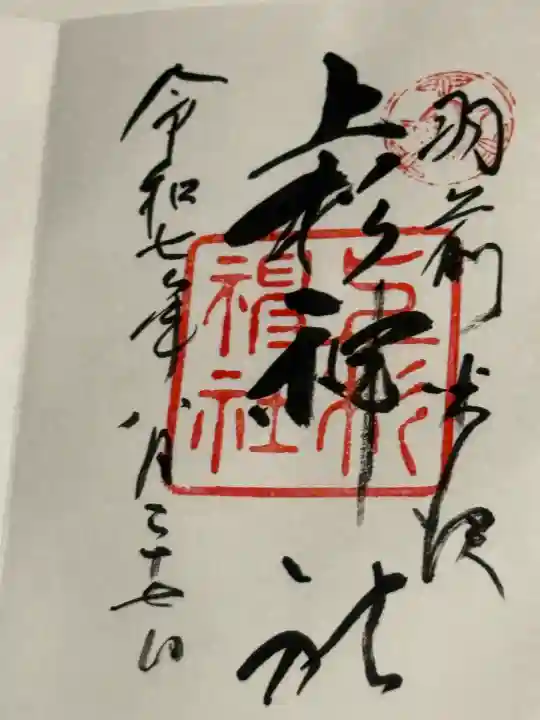 羽前米沢
上杉神社
上杉神社
令和七年八月二十七日